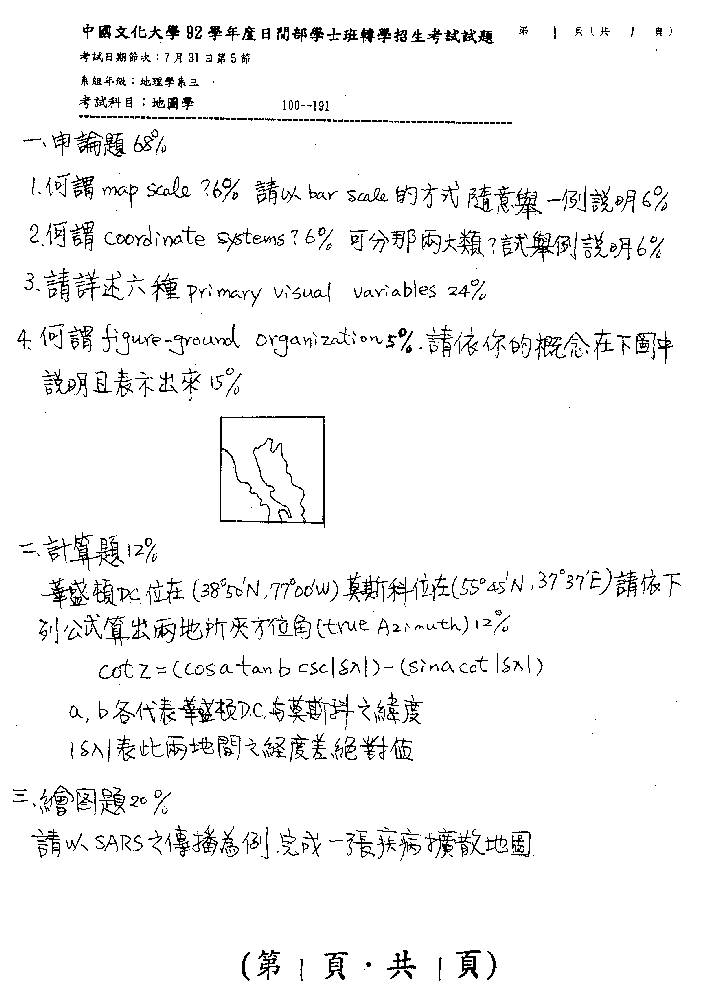 中國文化大學92學年度日間部學士班轉學招生考試試題 第 1 頁(共 1 頁)
考試日期節次:7月31日第5節
系組年級:地理學系三
考試科目:地圖學 100--191
一、申論題 68%
1.何謂map scale?6% 請以bar scale的方式隨意舉一例說明6%
2.何謂 coordinate systems?6% 可分那兩大類?試舉例說明6%
3.請詳述六種primary visual variables 24%
4.何謂figure-ground organization5%.請依你的概念在下圖中
說明且表示出來15%
二、計算題12%
華盛頓D.C.位在(38°50'N,77°00'W)莫斯科位在(55°45'N,37°37'E)請依下
列公式算出兩地所夾方位角(true Azimuth)12%
cot z=(cos a tan b csc|δλ|)-(sin a cot|δλ|)
a,b各代表華盛頓D.C.與莫斯科之緯度
|δλ|表此兩地間之經度差絕對值
三、繪图題20%
請以SARS之傳播為例,完成一張疾病擴散地圖.
(第 1 頁·共 1 頁)